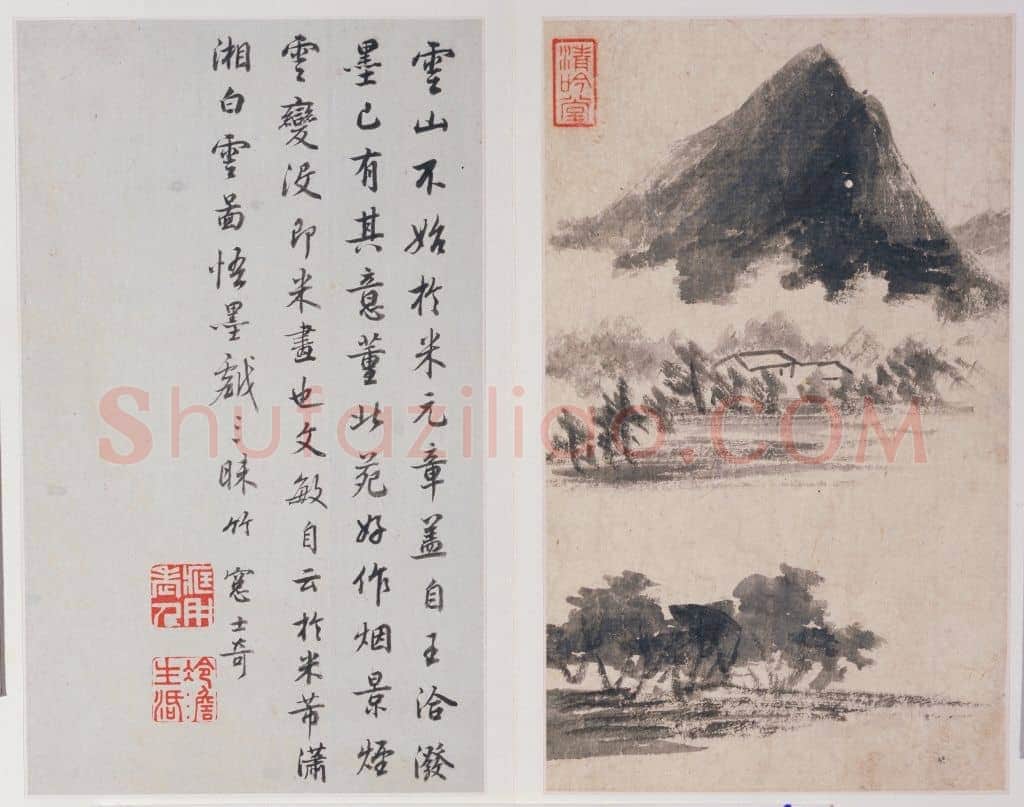 雲山不始於米元章盖自王洽潑
墨已有其意董北苑好作烟景煙
雲變没即米畫也文敏自云於米芾瀟
湘白雲啚悟墨戲三昧竹窓士奇
冷澹生活
清吟堂
Shufaziliao.COM